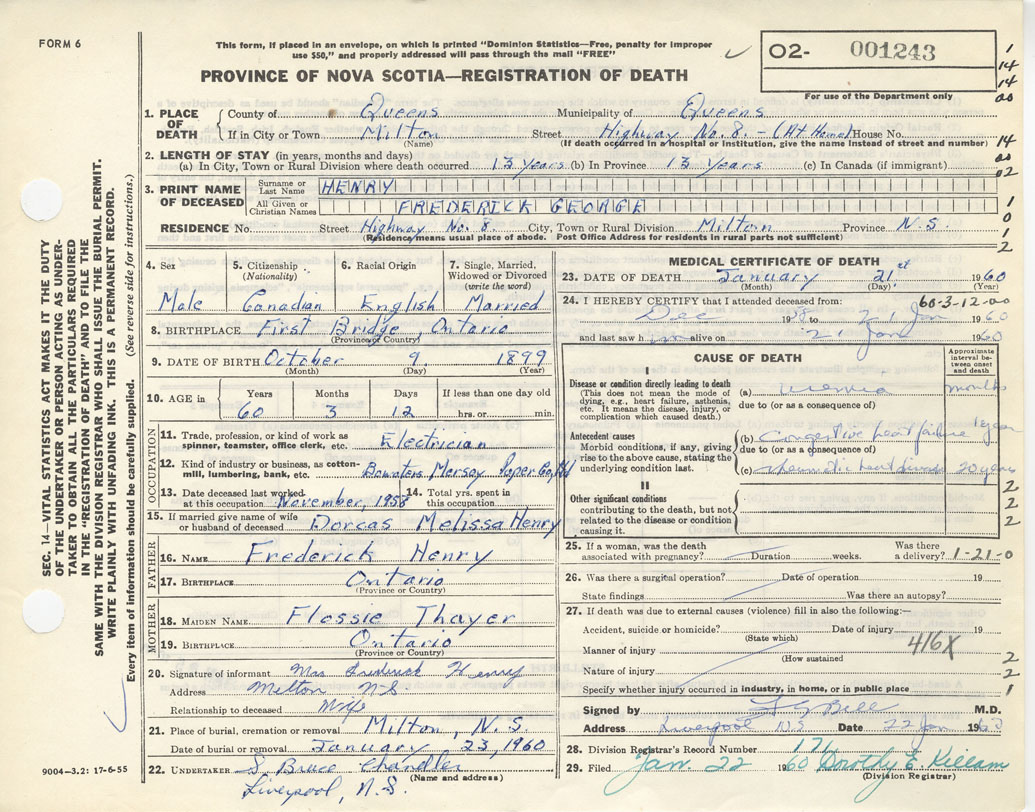 FORM 6
This form, if placed in an envelope, on which is printed "Dominion Statistics—Free, penalty for improper
use $50," and properly addressed will pass through the mail "FREE"
PROVINCE OF NOVA SCOTIA—REGISTRATION OF DEATH
O2- 001243
For use of the Department only
1
14
14
00
14
00
02
1
0
1
2
1. PLACE OF DEATH
County of Queens Municipality of Queens
If in City or Town Milton Street Highway No. 8. - (At Home) House No.
(Name) (If death occurred in a hospital or institution, give the name instead of street and number)
2. LENGTH OF STAY (in years, months and days)
(a) In City, Town or Rural Division where death occurred 13 years (b) In Province 13 years (c) In Canada (if immigrant)
3. PRINT NAME OF DECEASED
Surname or Last Name HENRY
All Given or Christian Names FREDERICK GEORGE
RESIDENCE No. Street Highway No. 8. City, Town or Rural Division Milton Province N.S.
(Residence means usual place of abode. Post Office Address for residents in rural parts not sufficient)
4. Sex 5. Citizenship (Nationality) 6. Racial Origin 7. Single, Married, Widowed or Divorced (write the word)
Male Canadian English Married
8. BIRTHPLACE First Bridge, Ontario
(Province or Country)
9. DATE OF BIRTH October 9, 1899
(Month) (Day) (Year)
10. AGE in Years Months Days If less than one day old
60 3 12 hrs. or min.
OCCUPATION
11. Trade, profession, or kind of work as spinner, teamster, office clerk, etc. Electrician
12. Kind of industry or business, as cotton-mill, lumbering, bank, etc. Bowaters Mersey Paper Co. Ltd
13. Date deceased last worked at this occupation November, 1958 14. Total yrs. spent in this occupation
15. If married give name of wife or husband of deceased Dorcas Melissa Henry
FATHER
16. NAME Frederick Henry
17. BIRTHPLACE Ontario
(Province or Country)
MOTHER
18. MAIDEN NAME Flossie Thayer
19. BIRTHPLACE Ontario
(Province or Country)
20. Signature of informant Mrs Frederick Henry
Address Milton N-S
Relationship to deceased Wife
21. Place of burial, cremation or removal Milton, N.S.
Date of burial or removal January 23, 1960
22. UNDERTAKER S. Bruce Chandler
(Name and address)
Liverpool, N.S.
MEDICAL CERTIFICATE OF DEATH
23. DATE OF DEATH January 21st 1960
(Month) (Day) (Year)
24. I HEREBY CERTIFY that I attended deceased from: 60-3-12-00
Dec 1958 to 21 Jan 1960
and last saw him alive on 21 Jan 1960
CAUSE OF DEATH
Approximate interval between onset and death
I
Disease or condition directly leading to death
(This does not mean the mode of dying, e.g., heart failure, asthenia, etc. It means the disease, injury, or complication which caused death.)
(a) uremia months
due to (or as a consequence of)
Antecedent causes
Morbid conditions, if any, giving rise to the above cause, stating the underlying condition last.
(b) Congestive heart failure 1 year
due to (or as a consequence of)
(c) rheumatic heart disease 20 years
II
Other significant conditions
contributing to the death, but not related to the disease or condition causing it.
2
2
2
25. If a woman, was the death associated with pregnancy? Duration weeks. Was there a delivery? 1-21-0
26. Was there a surgical operation? Date of operation 19
State findings Was there an autopsy?
27. If death was due to external causes (violence) fill in also the following:—
Accident, suicide or homicide? Date of injury 19
(State which)
Manner of injury 416X
(How sustained
Nature of injury
2
2
1
Specify whether injury occurred in industry, in home, or in public place
Signed by F G Bell M.D.
Address Liverpool N.S. Date 22 Jan 1960
28. Division Registrar's Record Number 176
29. Filed Jan. 22 1960 Dorothy E Killam
(Division Registrar)
SEC. 14—VITAL STATISTICS ACT MAKES IT THE DUTY
OF THE UNDERTAKER OR PERSON ACTING AS UNDER-
TAKER TO OBTAIN ALL THE PARTICULARS REQUIRED
IN THE "REGISTRATION OF DEATH" AND TO FILE THE
SAME WITH THE DIVISION REGISTRAR WHO SHALL ISSUE THE BURIAL PERMIT.
WRITE PLAINLY WITH UNFADING INK. THIS IS A PERMANENT RECORD.
Every item of information should be carefully supplied. (See reverse side for instructions.)
9004-3.2: 17-6-55